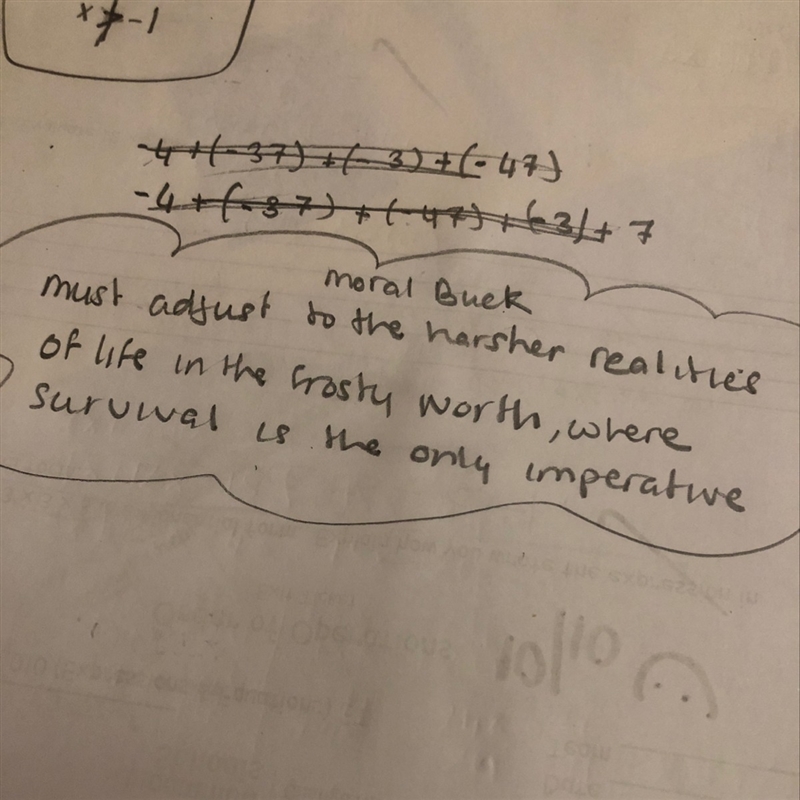 x ≯ -1
-4 + (-37) + (-3) + (-47)
-4 + (-37) + (-47) + (-3) + 7
moral Buck
must adjust to the harsher realities
of life in the frosty North, where
survival is the only imperative
Order of Operations
10/10
Team
Date